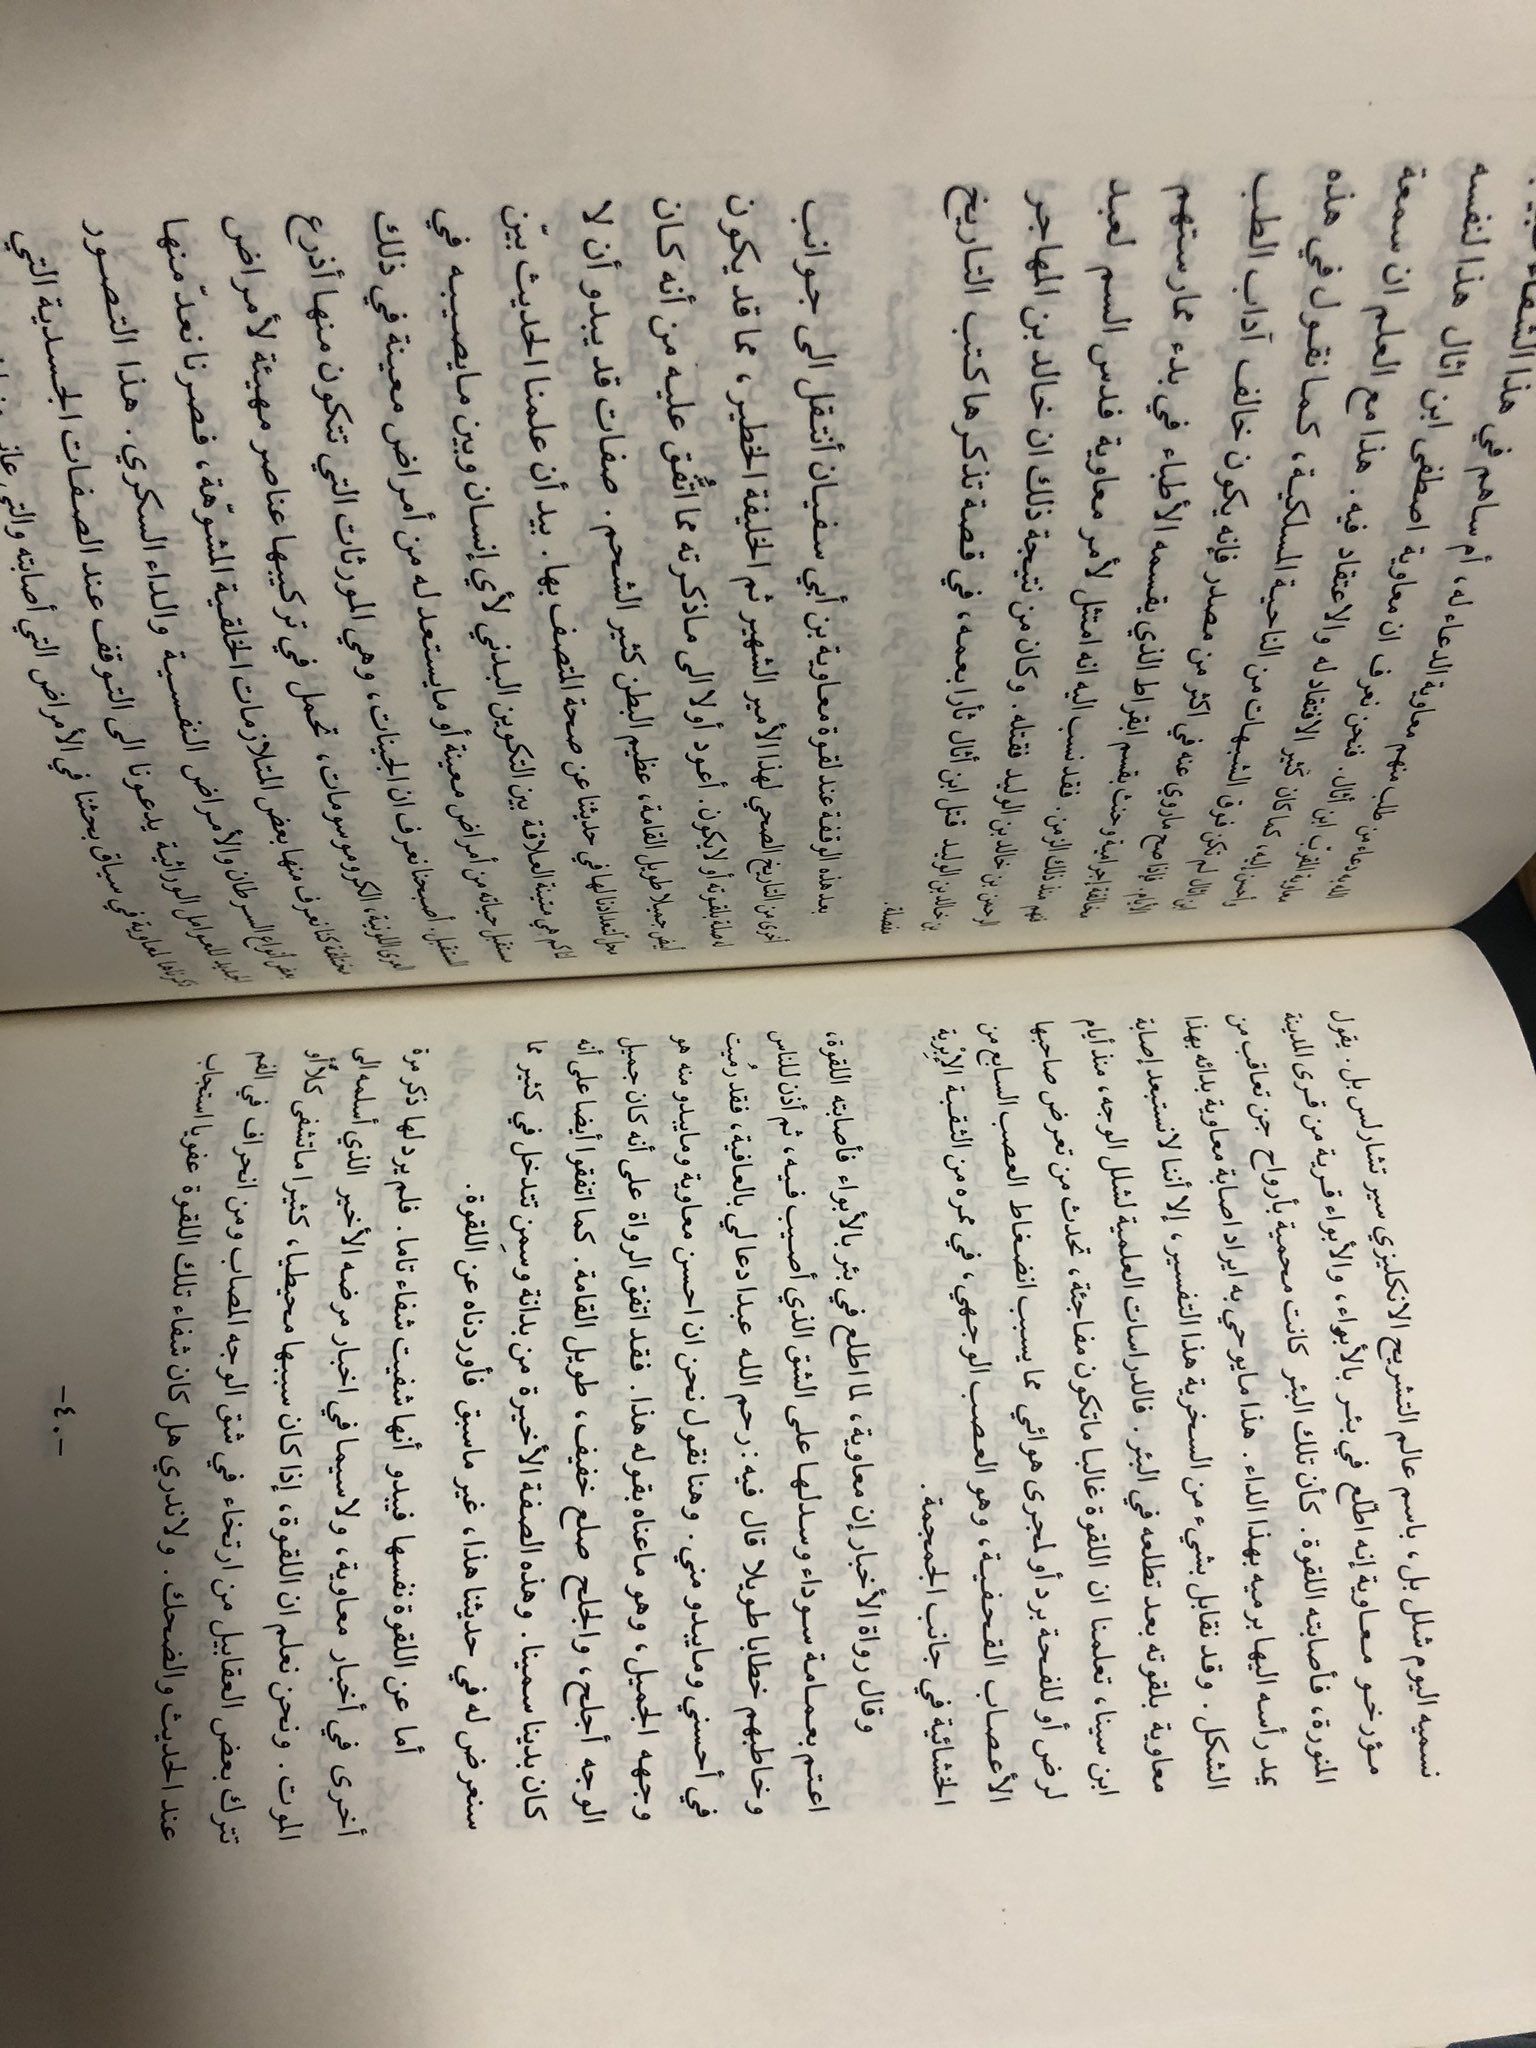 نسميه اليوم شلل بل، باسم عالم التشريح الانكليزي سير تشارلس بل. يقول
مؤرخو معاوية إنه اطّلع في بئر بالأبواء، والأبواء قرية من قرى المدينة
المنورة، فأصابته اللقوة. كأن تلك البئر كانت محمية بأرواح جن تعاقب من
يمد رأسه اليها برميه بهذا الداء. هذا ما يوحي به ايراد اصابة معاوية بدائه بهذا
الشكل. وقد نقابل بشيء من السخرية هذا التفسير، إلا أننا لا نستبعد إصابة
معاوية بلقوته بعد تطلعه في البئر. فالدراسات العلمية لشلل الوجه، منذ أيام
ابن سينا، تعلمنا ان اللقوة غالبا ماتكون مفاجئة، تحدث من تعرض صاحبها
لرض أو للفحة برد أو لمجرى هوائي مما يسبب انضغاط العصب السابع من
الأعصاب القحفية، وهو العصب الوجهي، في ممره من الثقبة الإبْرِية
الخشائية في جانب الجمجمة.
وقال رواة الأخبار إن معاوية، لما اطلع في بئر بالأبواء فأصابته اللقوة،
اعتم بعمامة سوداء وسدلها على الشق الذي أصيب فيه، ثم أذن للناس
وخاطبهم خطابا طويلا قال فيه: رحم الله عبدا دعا لي بالعافية، فقد رُميت
في أحسني وما يبدو مني. وهنا نقول نحن ان احسن معاوية وما يبدو منه هو
وجهه الجميل، وهو ماعناه بقوله هذا. فقد اتفق الرواة على أنه كان جميل
الوجه أجلح، والجلح صلع خفيف، طويل القامة. كما اتفقوا أيضا على أنه
كان بدينا سمينا. وهذه الصفة الأخيرة من بدانة وسِمن تتدخل في كثير مما
سنعرض له في حديثنا هذا، غير ماسبق فأوردناه عن اللقوة.
أما عن اللقوة نفسها فيبدو أنها شفيت شفاء تاما. فلم يرد لها ذكر مرة
أخرى في أخبار معاوية، ولا سيما في اخبار مرضه الأخير الذي أسلمه الى
الموت. ونحن نعلم ان اللقوة، إذا كان سببها محيطيا، كثيرا ماتشفى كلاً أو
تترك بعض العقابيل من ارتخاء في شق الوجه المصاب ومن انحراف في الفم
عند الحديث والضحك. ولاندري هل كان شفاء تلك اللقوة عفويا استجاب
-٤٠-
الله به دعاء من طلب منهم معاوية الدعاء له، أم ساهم في هذا الشفاء
ابن أثال. فنحن نعرف ان معاوية اصطفى ابن اثال هذا لنفسه
وأحسن إليه، كما كان كثير الافتقاد له والاعتقاد فيه. هذا مع العلم ان سمعة
ابن اثال لم تكن فوق الشبهات من الناحية المسلكية، كما نقول في هذه
الأيام. فإذا صح ماروي عنه في اكثر من مصدر فإنه يكون خالف آداب الطب
مخالفة إجرامية وحنث بقسم ابقراط الذي يقسمه الأطباء في بدء ممارستهم
مهنتهم منذ ذلك الزمن. فقد نسب اليه انه امتثل لأمر معاوية فدس السم لعبد
الرحمن بن خالد بن الوليد فقتله. وكان من نتيجة ذلك ان خالد بن المهاجر
بن خالد بن الوليد قتل ابن أثال ثأرا بعمه، في قصة تذكرها كتب التاريخ
مفصلة.
بعد هذه الوقفة عند لقوة معاوية بن أبي سفيان أنتقل الى جوانب
أخرى من التاريخ الصحي لهذا الأمير الشهير ثم الخليفة الخطير، مما قد يكون
له صلة بلقوته أو لا يكون. أعود أولا الى ماذكرته مما اتُّفق عليه من أنه كان
أبيض جميلا طويل القامة، عظيم البطن كثير الشحم. صفات قد يبدو أن لا
محل لتعدادنا لها في حديثنا عن صحة المتصف بها. بيد أن علمنا الحديث بيّن
لنا كم هي متينة العلاقة بين التكوين البدني لأي إنسان وبين ما يصيبه في
مستقبل حياته من أمراض معينة أو مايستعد له من أمراض معينة في ذلك
المستقبل. أصبحنا نعرف ان الجينات، وهي المورثات التي تتكون منها أذرع
العرى اللونية، الكروموسومات، تحمل في تركيبها عناصر مهيئة لأمراض
مختلفة كنا نعرف منها بعض المتلازمات الخلقية المشوّهة، فصرنا نعدّ منها
بعض أنواع السرطان والأمراض النفسية والداء السكري. هذا التصور
الجديد للعوامل الوراثية يدعونا الى التوقف عند الصفات الجسدية التي
ذكرناها لمعاوية في سياق بحثنا في الأمراض التي أصابته والتي